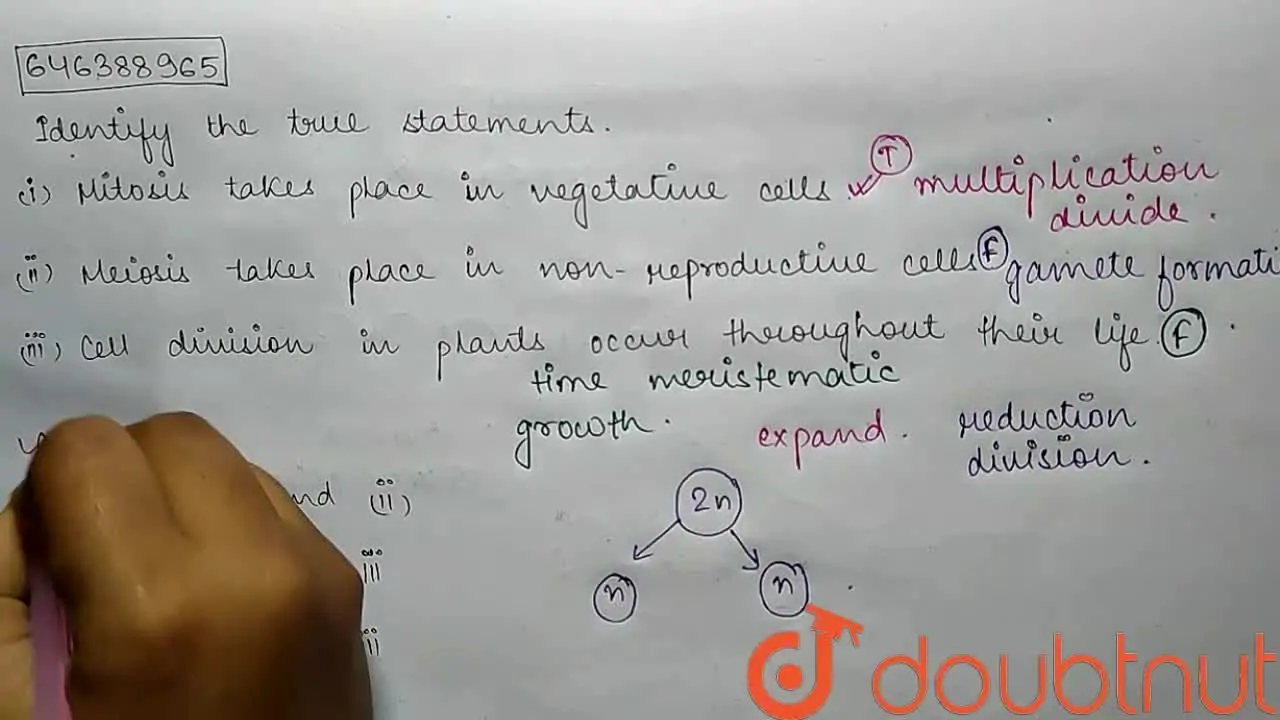 646388965
Identify the true statements.
(i) Mitosis takes place in vegetative cells. T multiplication
divide.
(ii) Meiosis takes place in non-reproductive cells F gamete formati
(iii) Cell division in plants occur throughout their life. F
time meristematic
growth. expand. reduction
division.
and (ii)
2n
iii
n n
ii
doubtnut